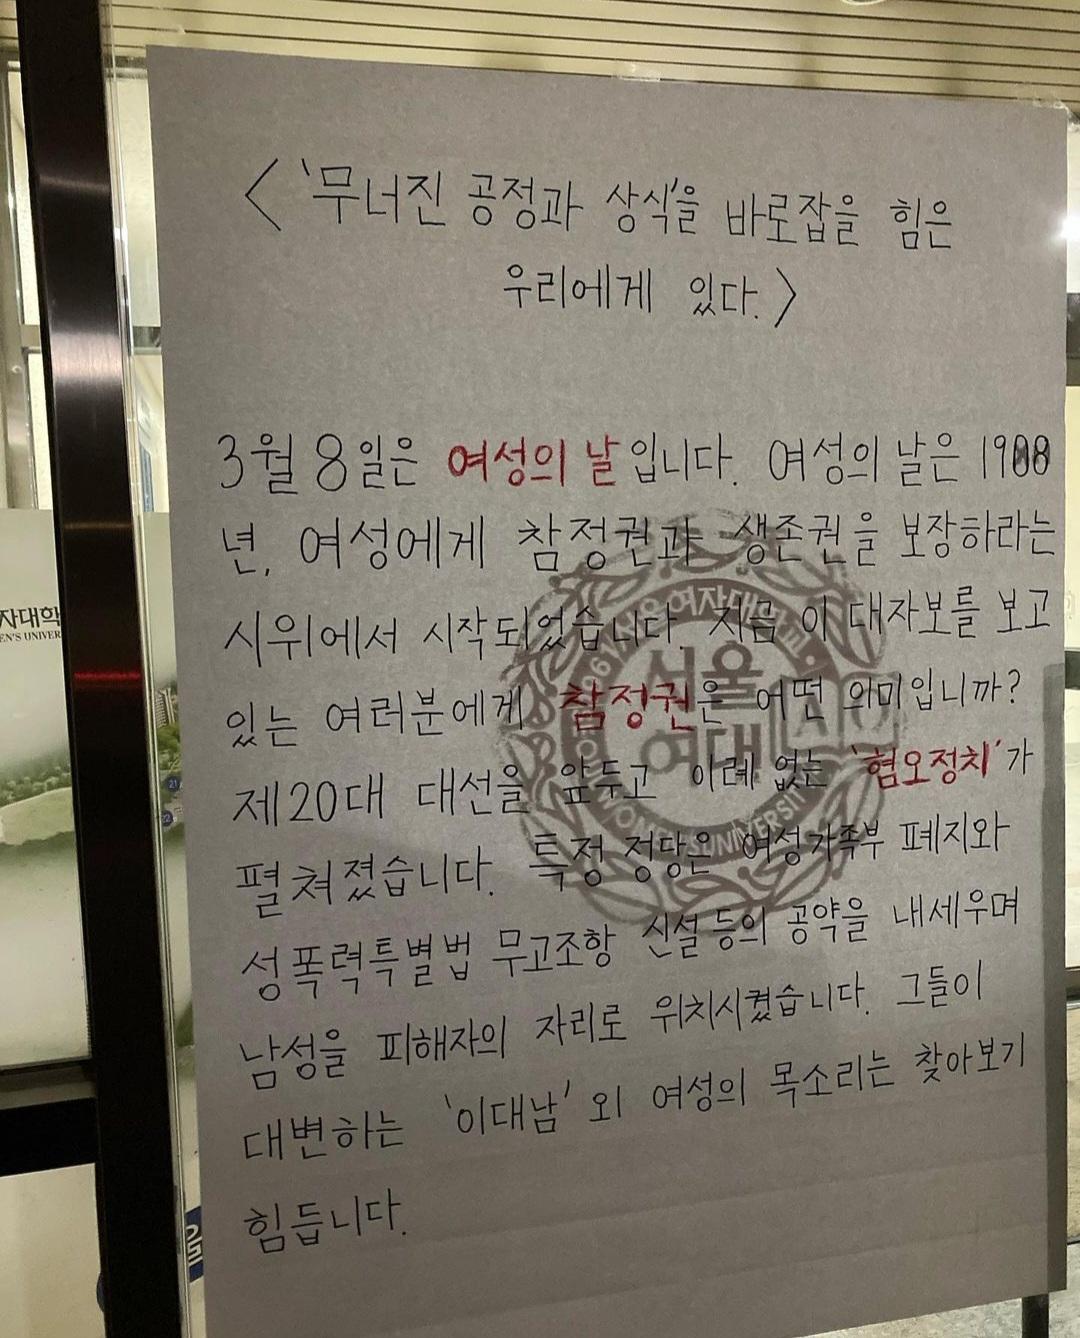 <'무너진 공정과 상식'을 바로잡을 힘은
우리에게 있다.>
3월 8일은 여성의 날입니다. 여성의 날은 1908
년, 여성에게 참정권과 생존권을 보장하라는
시위에서 시작되었습니다. 지금 이 대자보를 보고
있는 여러분에게 참정권은 어떤 의미입니까?
제20대 대선을 앞두고 이례 없는 '혐오정치'가
펼쳐졌습니다. 특정 정당은 여성가족부 폐지와
성폭력특별법 무고조항 신설 등의 공약을 내세우며
남성을 피해자의 자리로 위치시켰습니다. 그들이
대변하는 '이대남' 외 여성의 목소리는 찾아보기
힘듭니다.
서울
여대
1961 서울여자대학교
SEOUL WOMEN'S UNIVERSITY
자대학
EN'S UNIVER
21
22